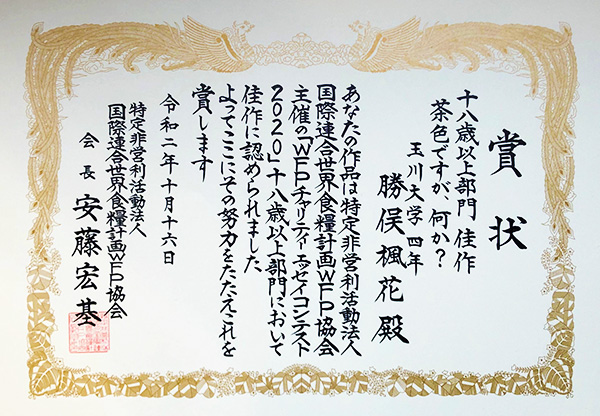 賞状
十八歳以上部門 佳作
茶色ですが、何か?
玉川大学 四年
勝俣楓花 殿
あなたの作品は特定非営利活動法人
国際連合世界食糧計画WFP協会
主催の「WFPチャリティー エッセイコンテスト
2020」十八歳以上部門において
佳作に認められました
よってここにその努力をたたえこれを
賞します
令和二年十月十六日
特定非営利活動法人
国際連合世界食糧計画WFP協会
会長 安藤宏基